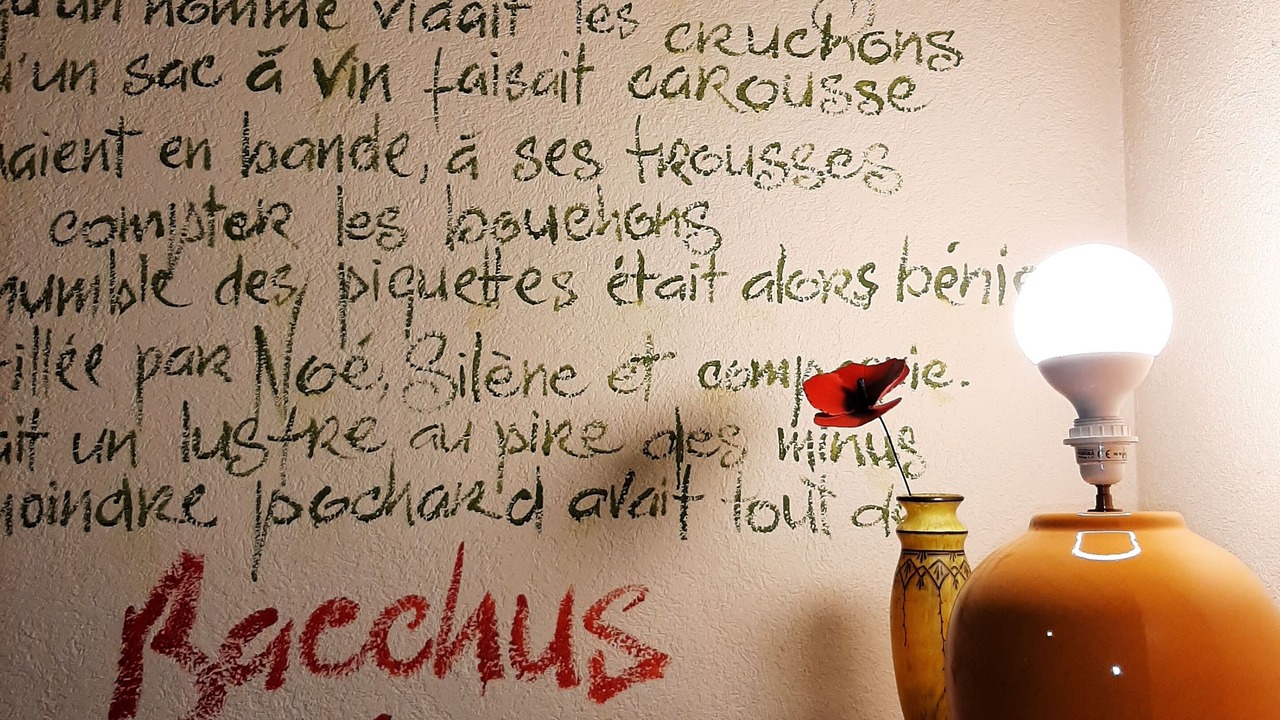 qu'un homme vidait les cruchons
d'un sac à vin faisait carousse
en bande, à ses trousses
compter les bouchons
humble des piquettes était alors bénie
par Noé, Silène et compagnie.
un lustre au pire des minus
moindre pochard avait tout de
Bacchus